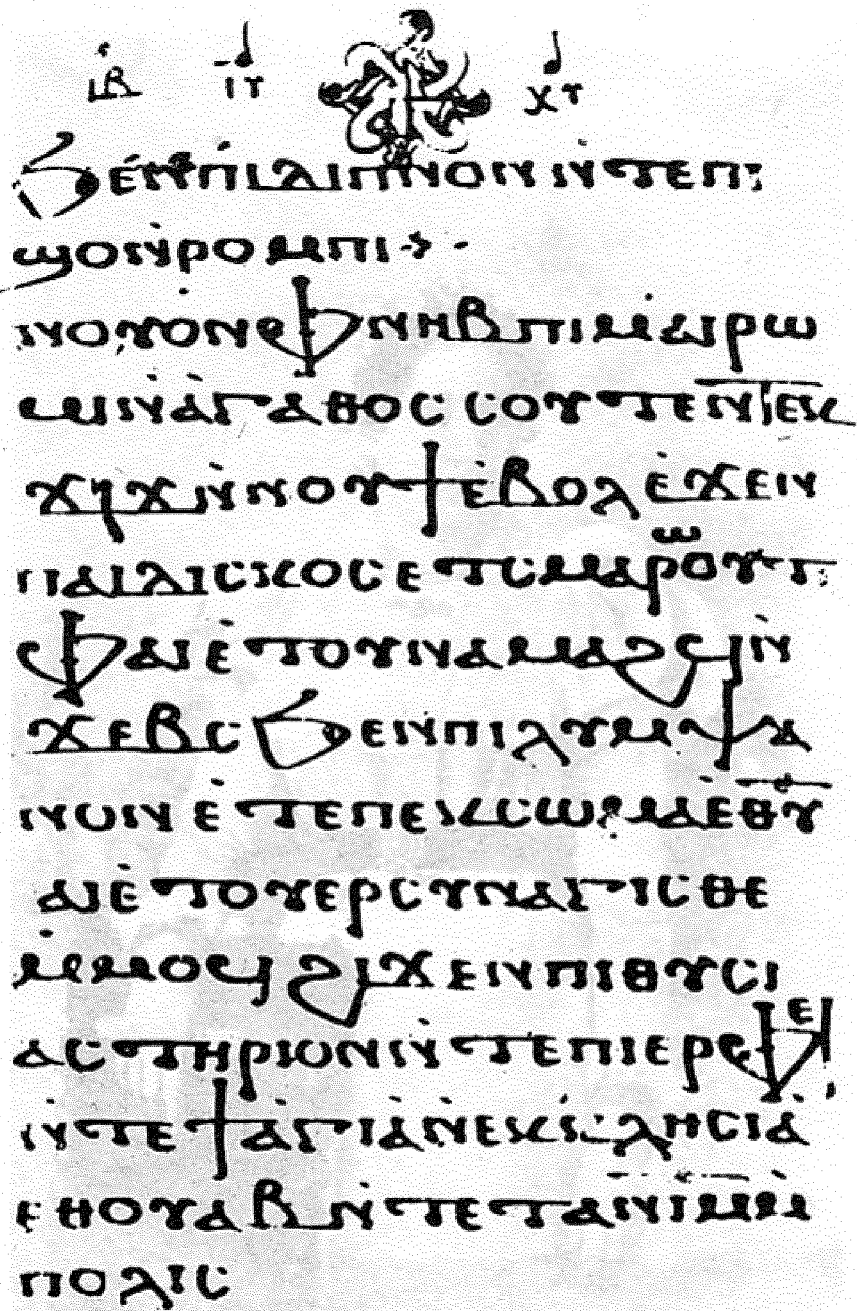 ⲓⲃ ⲓⲩ ⲭⲩ
ϧⲉⲛⲡⲓⲇⲓⲡⲛⲟⲛⲛ̇ⲧⲉⲡⲓ
ϣⲟⲛⲣⲟⲙⲡⲓ
ⲛⲟⲩⲟ̇ⲛⲫⲛⲏⲃⲡⲓⲙ̇ⲁⲓⲣⲱ
ⲙⲓⲛ̇ⲁ̇ⲅⲁⲑⲟⲥⲥⲟⲩⲧⲉⲛⲧⲉⲕ
ϫⲓϫⲛ̇ⲛⲟⲩϯⲉ̇ⲃⲟⲗⲉ̇ϫⲉⲛ
ⲡⲁⲓⲇⲓⲥⲕⲟⲥⲉⲧⲥⲙⲁⲣⲱⲟⲩⲧ:
ⲫⲁⲓⲉ̇ⲧⲟⲩⲛⲁⲙⲁϩϥⲛ̇
ϫⲉⲃⲥϧⲉⲛⲡⲓⲗⲩⲙⲯⲁ
ⲛⲟⲛⲉ̇ⲧⲉⲡⲉⲕⲥⲱⲙⲁⲉ̇ⲑⲩ
ⲁⲓⲉ̇ⲧⲟⲩⲉⲣⲥⲩⲛⲁⲅⲓⲥⲑⲉ
ⲙ̇ⲙⲟϥϩⲓϫⲉⲛⲡⲓⲑⲩⲥⲓ
ⲁⲥⲧⲏⲣⲓⲟⲛⲛ̇ⲧⲉⲡⲓⲉⲣⲫⲉⲓ
ⲛ̇ⲧⲉϯⲁ̇ⲅⲓⲁ̇ⲛⲉⲕⲕⲗⲏⲥⲓⲁ̇
ⲉⲑⲟⲩⲁⲃⲛ̇ⲧⲉⲧⲁⲓⲛⲓⲙⲙ
ⲡⲟⲗⲓⲥ